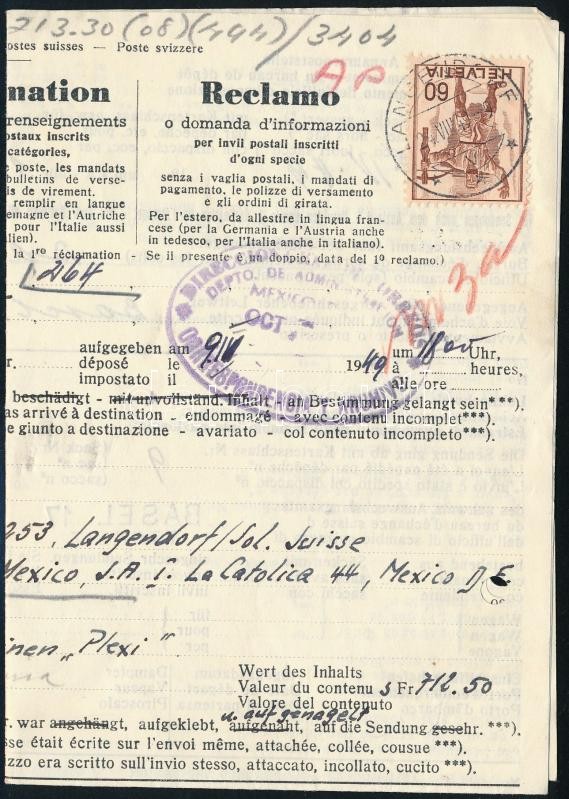 213.30 (08) (494) / 3404
ostes suisses — Poste svizzere
AP
HELVETIA
60
LANGENDORF
mation
Reclamo
renseignements
o domanda d'informazioni
postaux inscrits
per invii postali inscritti
catégories,
d'ogni specie
e poste, les mandats
bulletins de verse-
is de virement.
senza i vaglia postali, i mandati di
pagamento, le polizze di versamento
e gli ordini di girata.
remplir en langue
emagne et l'Autriche
pour l'Italie aussi
lien).
Per l'estero, da allestire in lingua fran-
cese (per la Germania e l'Austria anche
in tedesco, per l'Italia anche in italiano).
la 1re réclamation - Se il presente è un doppio, data del 1° reclamo.)
264
DEPTO. DE
MEXICO
OCT
aufgegeben am
r. déposé le
impostato il
1949
um 18 00 Uhr,
à heures,
alle ore
beschädigt - mit unvollständ. Inhalt - an Bestimmung gelangt sein***).
as arrivé à destination - endommagé - avec contenu incomplet***).
e giunto a destinazione - avariato - col contenuto incompleto***).
253, Langendorf/Sol. Suisse
Mexico S.A. I. La Catolica 44, Mexico D.F.
inen „Plexi"
Wert des Inhalts
Valeur du contenu s Fr 712.50
Valore del contenuto
u. aufgenagelt
r. war angehängt, aufgeklebt, aufgenäht, auf die Sendung geschr. ***).
sse était écrite sur l'envoi même, attachée, collée, cousue ***).
izzo era scritto sull'invio stesso, attaccato, incollato, cucito ***).